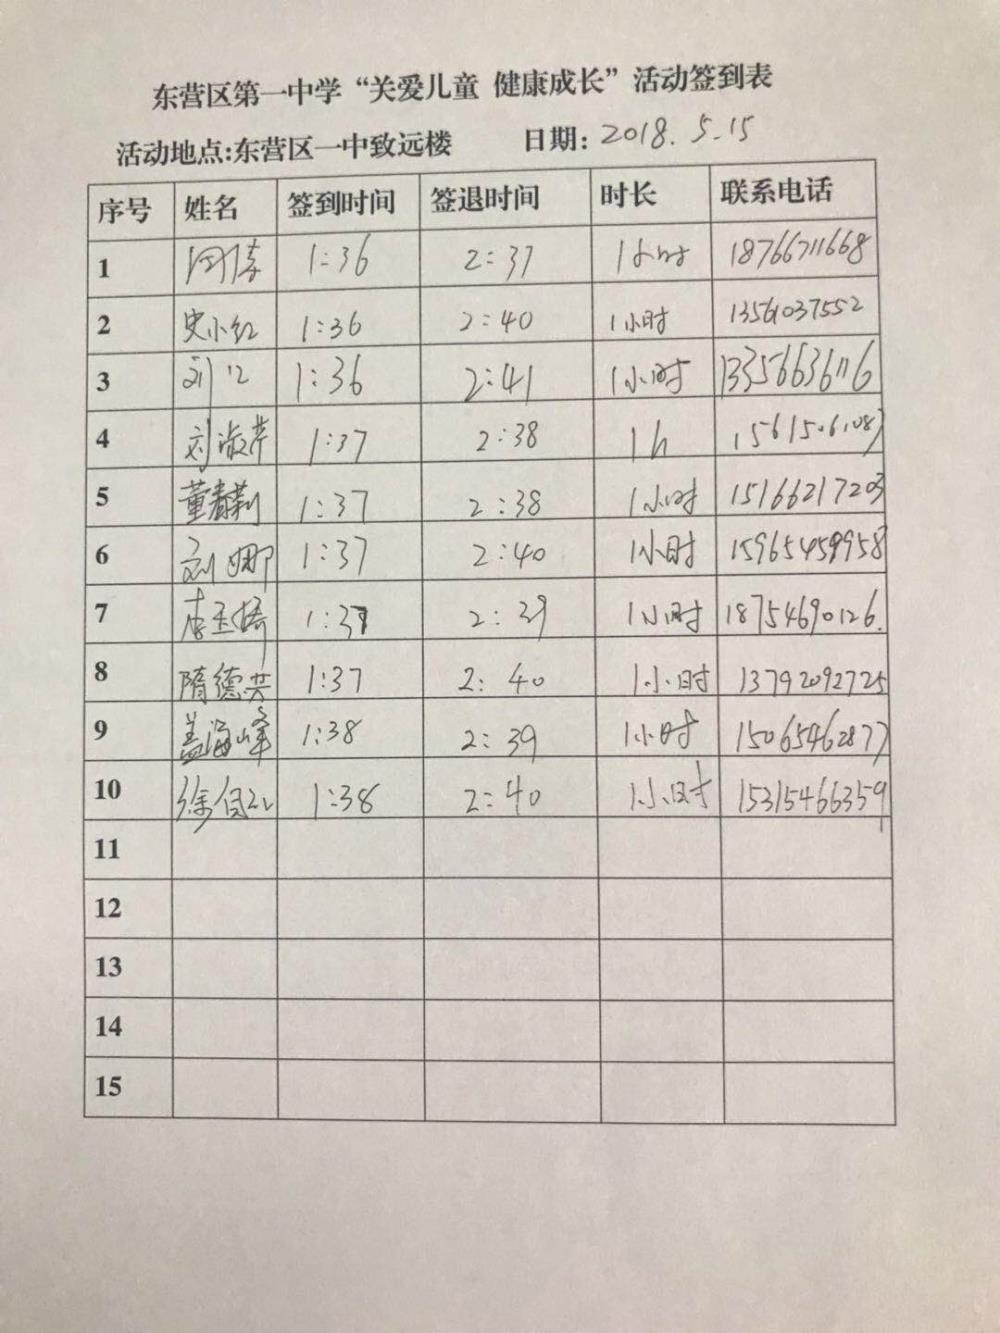 东营区第一中学“关爱儿童 健康成长”活动签到表
活动地点:东营区一中致远楼 日期: 2018.5.15
序号 姓名 签到时间 签退时间 时长 联系电话
1 1:36 2:37 1小时 18766711668
2 史小红 1:36 2:40 1小时 13561037552
3 刘 1:36 2:41 1小时 13356636116
4 刘淑芹 1:37 2:38 1h 15615061087
5 董春莉 1:37 2:38 1小时 15166217203
6 刘娜 1:37 2:40 1小时 15965459958
7 李玉 1:37 2:39 1小时 18754690126.
8 隋德共 1:37 2:40 1小时 13792092725
9 盖海峰 1:38 2:39 1小时 15065462877
10 徐 1:38 2:40 1小时 15315466359
11
12
13
14
15